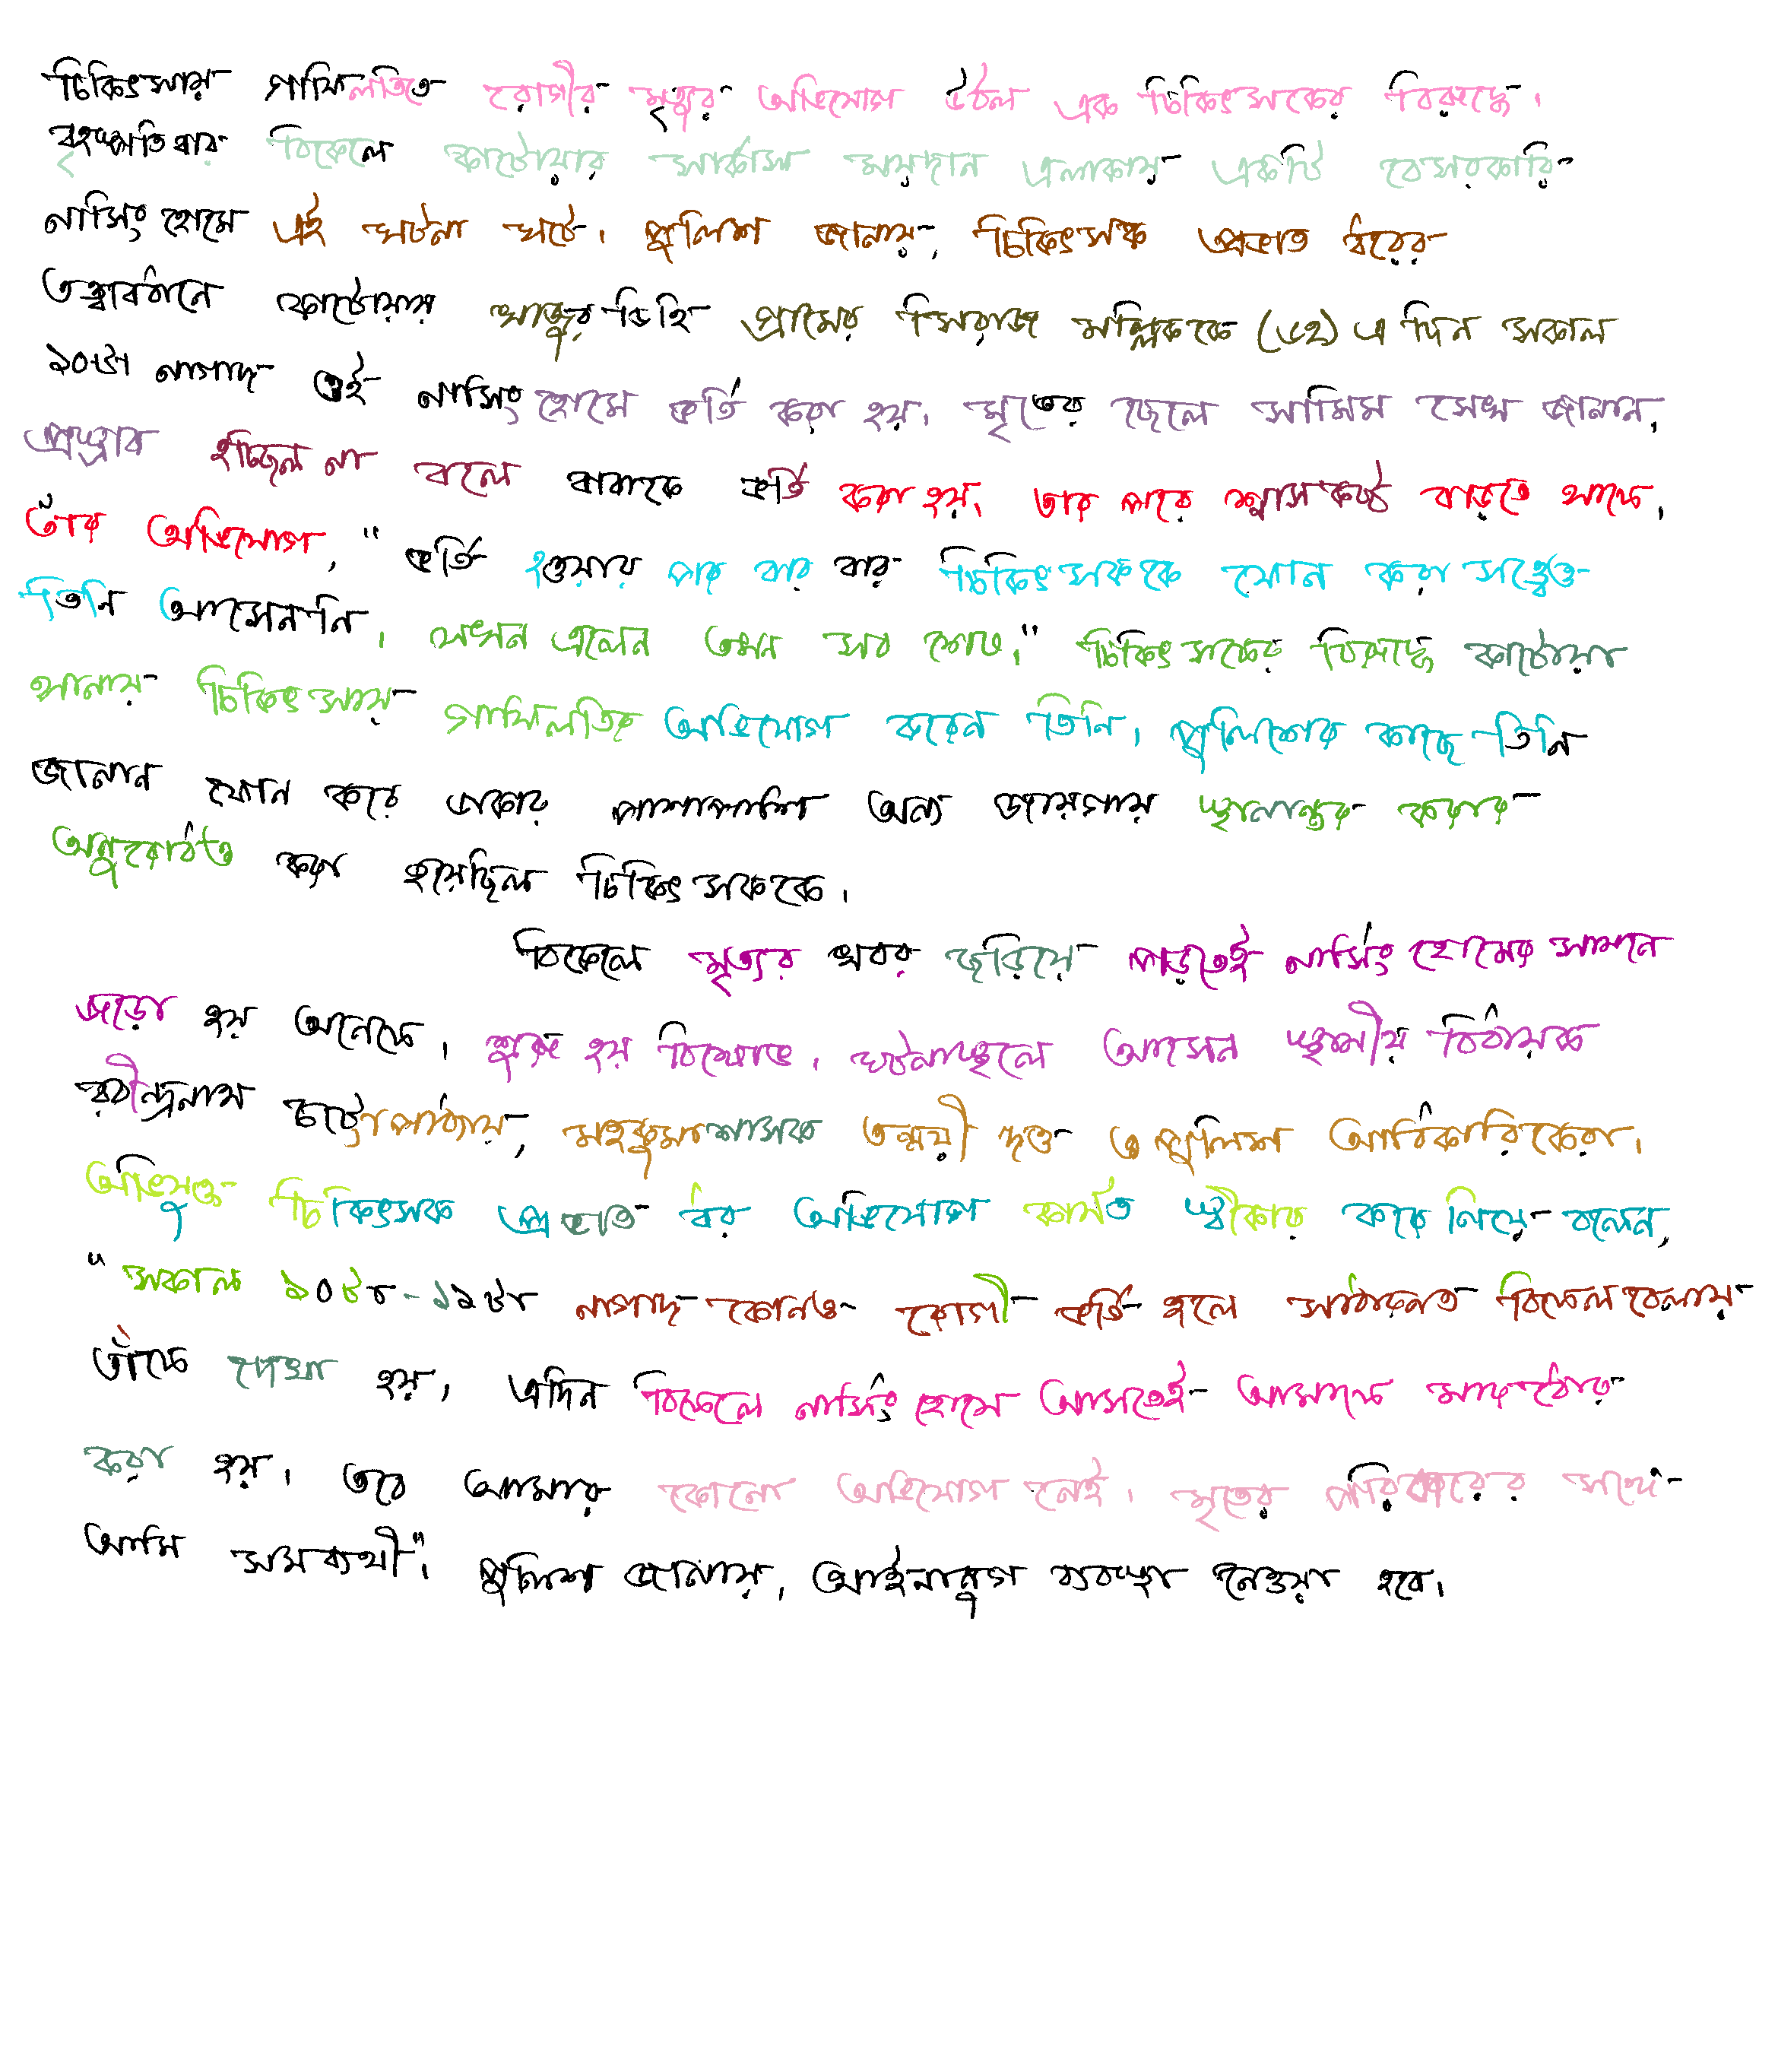 চিকিৎসায় গাফিলতিতে রোগীর মৃত্যুর অভিযোগ উঠল এক চিকিৎসকের বিরুদ্ধে।
বৃহস্পতিবার বিকেলে কাটোয়ার সার্কাস ময়দান এলাকায় একটি বেসরকারি
নার্সিংহোমে এই ঘটনা ঘটে। পুলিশ জানায়, চিকিৎসক প্রভাত ধরের
তত্ত্বাবধানে কাটোয়ায় খাজুরডিহি গ্রামের সিরাজ মল্লিককে (৬২) এ দিন সকাল
১০টা নাগাদ ওই নার্সিংহোমে ভর্তি করা হয়। মৃতের ছেলে সামিম সেখ জানান,
প্রস্রাব হচ্ছিল না বলে বাবাকে ভর্তি করা হয়। তার পরে শ্বাসকষ্ট বাড়তে থাকে।
তাঁর অভিযোগ, “ভর্তি হওয়ার পর বার বার চিকিৎসককে ফোন করা সত্ত্বেও
তিনি আসেননি। যখন এলেন তখন সব শেষ।” চিকিৎসকের বিরুদ্ধে কাটোয়া
থানায় চিকিৎসায় গাফিলতির অভিযোগ করেন তিনি। পুলিশের কাছে তিনি
জানান ফোন করে ডাকার পাশাপাশি অন্য জায়গায় স্থানান্তর করার
অনুরোধও করা হয়েছিল চিকিৎসককে।
বিকেলে মৃত্যর খবর জরিয়ে পড়তেই নার্সিংহোমের সামনে
জড়ো হয় অনেকে। শুরু হয় বিক্ষোভ। ঘটনাস্থলে আসেন স্থানীয় বিধায়ক
রবীন্দ্রনাথ চট্টোপাধ্যায়, মহকুমাশাসক তন্ময়ী দত্ত ও পুলিশ আধিকারিকেরা।
অভিযুক্ত চিকিৎসক প্রভাত ধর অভিযোগ কার্যত স্বীকার করে নিয়ে বলেন,
“সকাল ১০টা-১১টা নাগাদ কোনও রোগী ভর্তি হলে সাধারনত বিকেলবেলায়
তাঁকে দেখা হয়। এদিন বিকেলে নার্সিংহোমে আসতেই আমাকে মারধোর
করা হয়। তবে আমার কোনো অভিযোগ নেই। মৃতের পরিবারের সঙ্গে
আমি সমব্যথী”। পুলিশ জানায়, আইনানুগ ব্যবস্থা নেওয়া হবে।